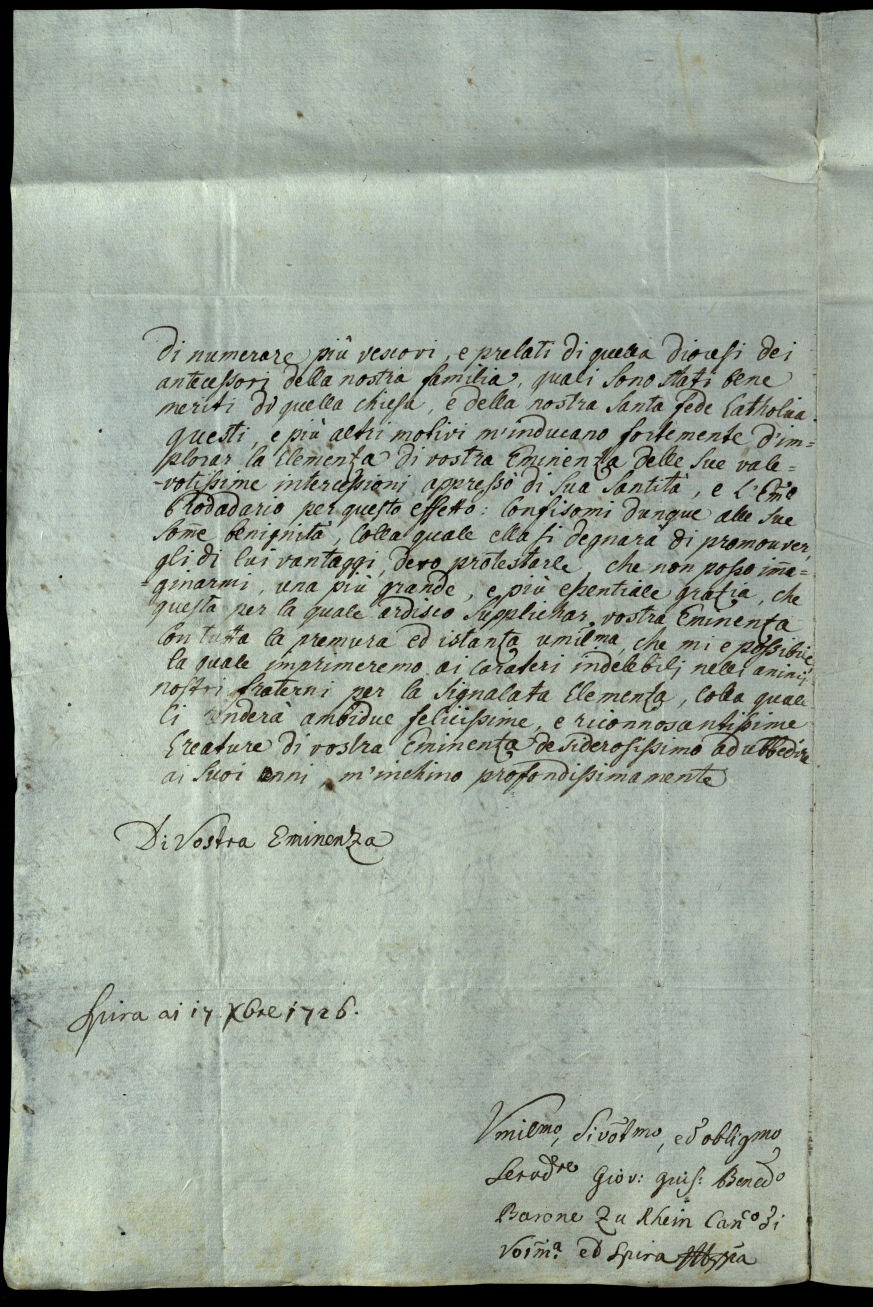 Di numerare più vescovi, e prelati di quella diocesi dei
antecessori della nostra familia, quali sono stati bene
meriti di quella chiesa, e della nostra Santa fede Catholica
questi, e più altri motivi m'inducano fortemente d'im=
plorar la Clemenza di vostra Eminenza delle sue vale=
-votissime intercessioni appresso di Sua Santità, e l'Emo
Prodadario per questo effetto: Confisomi dunque alle sue
some benignità, colla quale ella si degnarà di promouver,
gli di lui vantaggi, devo protestarle, che non posso ima=
=ginarmi, una più grande, e più essentiale gratia, che
questa per la quale ardisco supplichar, vostra Eminenza
con tutta la premura ed istanza umilma, che mi e possibile,
la quale imprimeremo ai carateri indelebili nelli animi
nostri fraterni per la signalata Clemenza, colla quale
Ci renderà ambidue felicissime, e riconnosantissime
Creature di vostra Eminenza desiderosissimo ad ubbedire
ai suoi enni m'inchino profondissimamente
Di Vostra Eminenza
Spira ai 17 Xbre 1726.
Vmilmo, divotmo, ed obligmo
Servdre Giov: Guis: Benedo
Barone Zu Rhein Canco di
Vorma. ed Spira